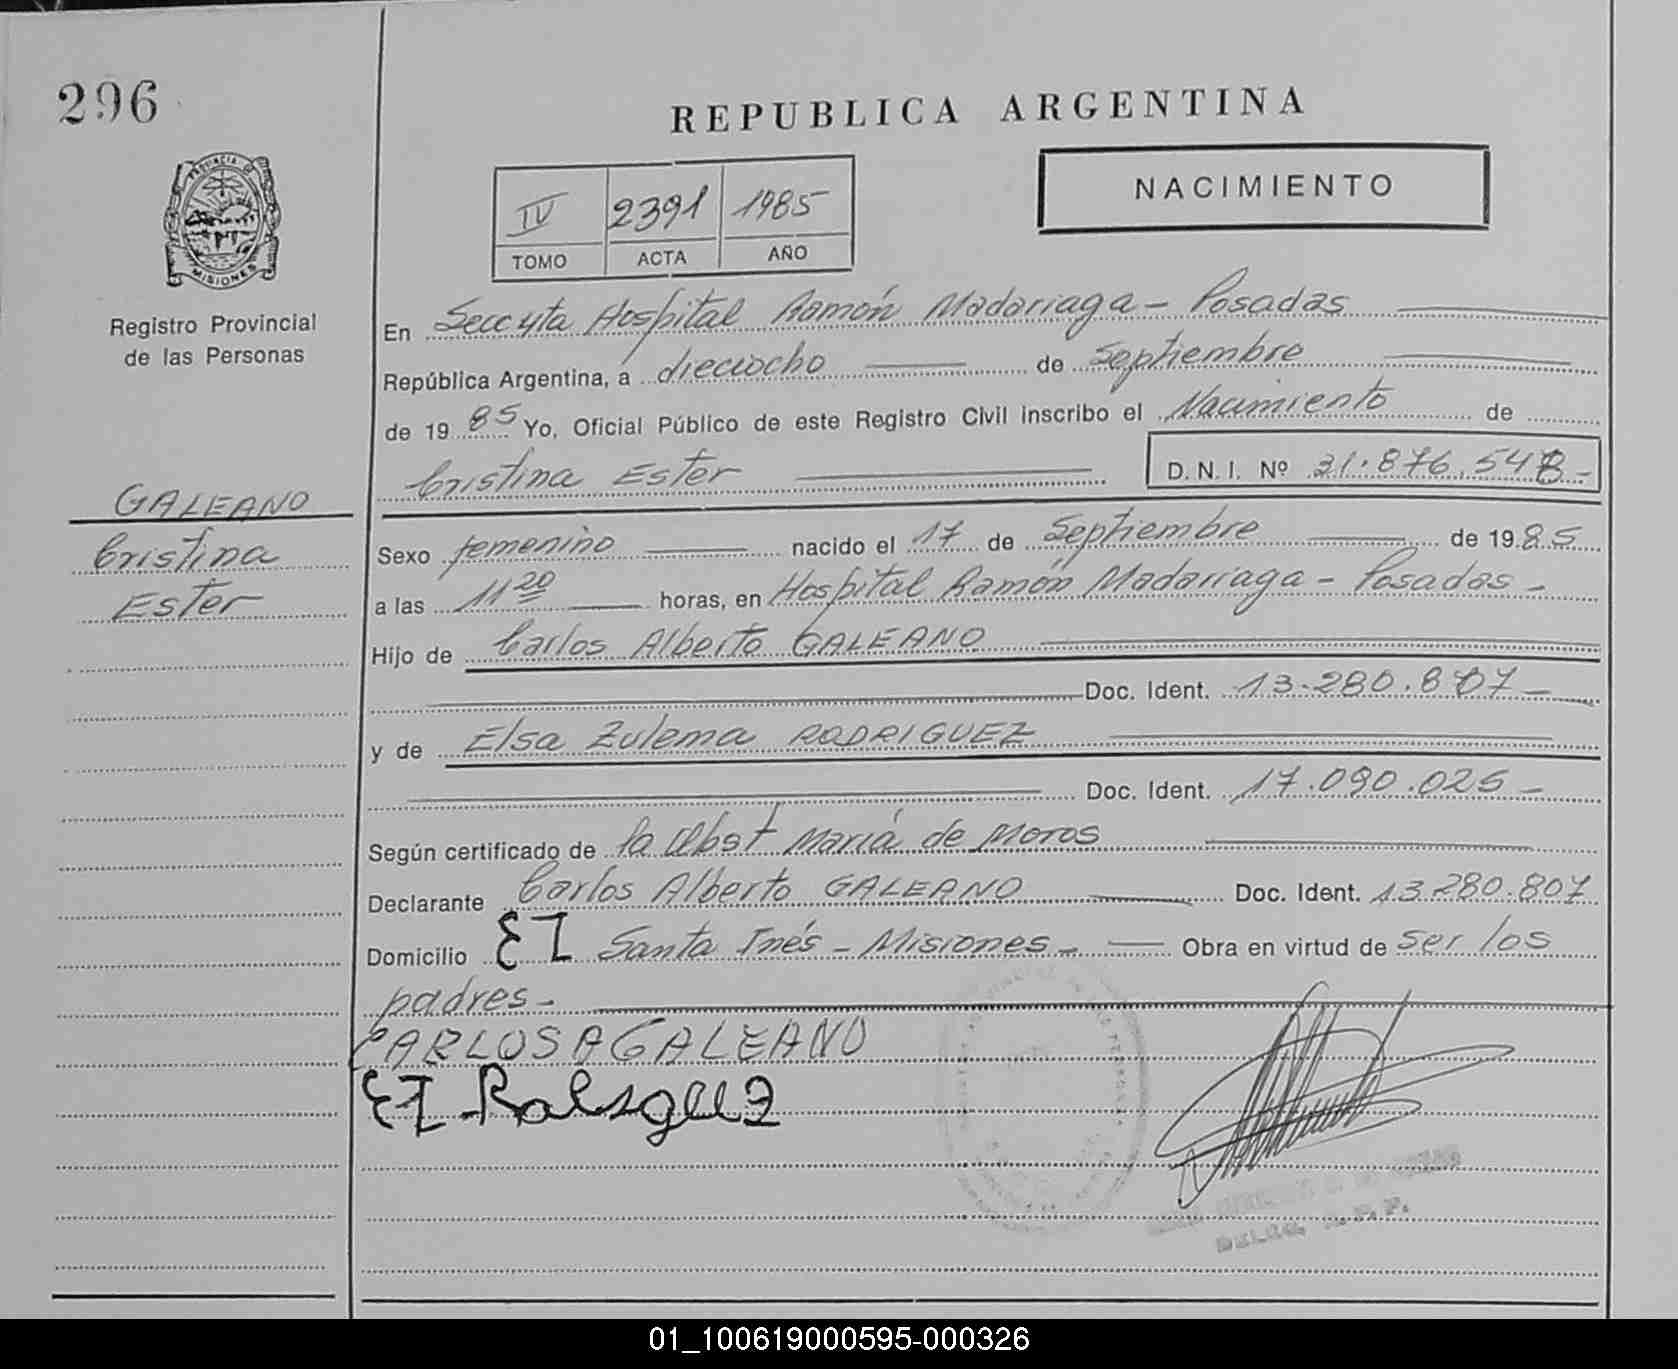 296
REPUBLICA ARGENTINA
PROVINCIA DE
MISIONES
Registro Provincial
de las Personas
IV 2391 1985
TOMO ACTA AÑO
NACIMIENTO
En Secc yta Hospital Ramón Madariaga - Posadas
República Argentina, a dieciocho de Septiembre
de 1985 Yo, Oficial Público de este Registro Civil inscribo el Nacimiento de
Cristina Ester D.N.I. Nº
GALEANO
Cristina
Ester
Sexo femenino nacido el 17 de Septiembre de 1985
a las 11 20 horas, en Hospital Ramón Madariaga - Posadas -
Hijo de Carlos Alberto GALEANO
Doc. Ident. 13.280.807 -
y de Elsa Zulema RODRIGUEZ
Doc. Ident. 17.090.025 -
Según certificado de la Obst María de Moros
Declarante Carlos Alberto GALEANO Doc. Ident. 13.280.807
Domicilio Santa Inés - Misiones - Obra en virtud de ser los
padres -
CARLOS A GALEANO
01_100619000595-000326